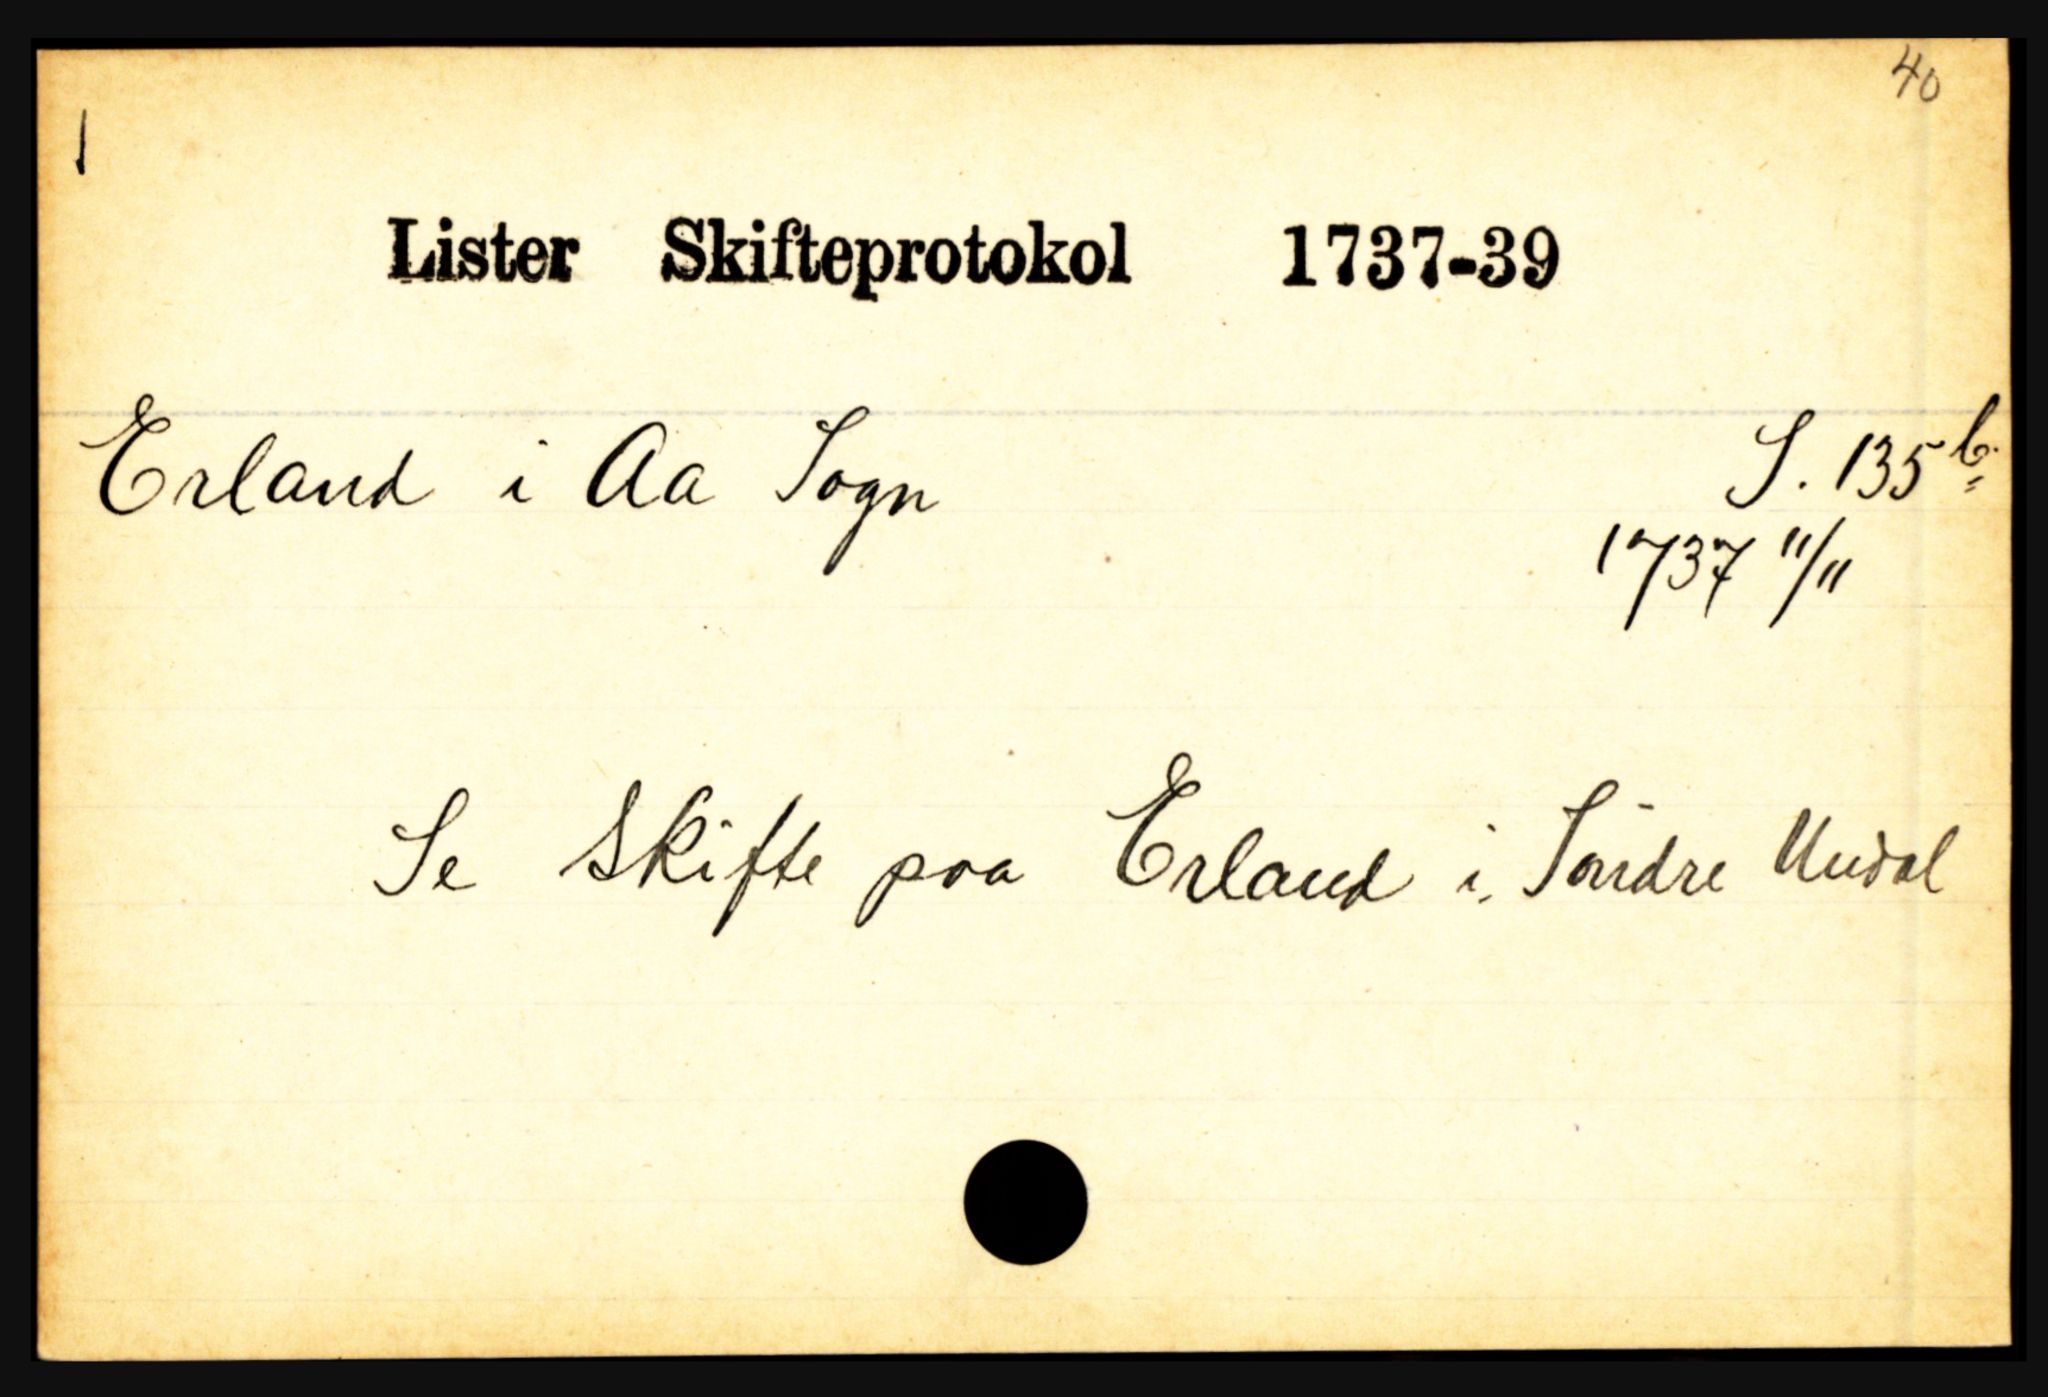 40
1
Lister Skifteprotokol 1737-39
Erland i Aa Sogn S. 135 b.
1737 11/11
Se Skifte paa Erland i Söndre Undal